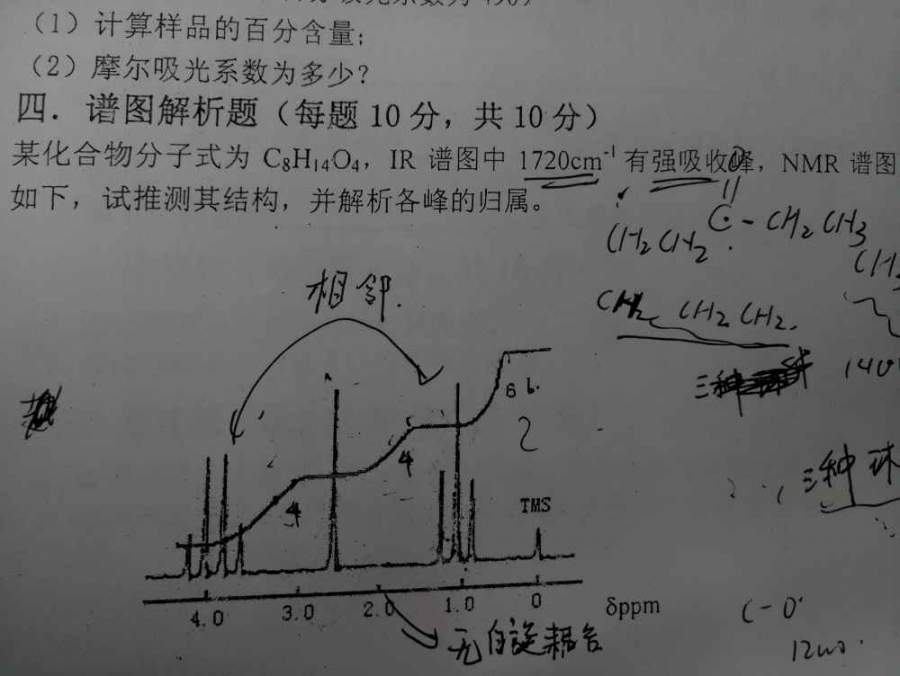 （1）计算样品的百分含量；
（2）摩尔吸光系数为多少？
四．谱图解析题（每题 10 分，共 10 分）
某化合物分子式为 C₈H₁₄O₄，IR 谱图中 1720cm⁻¹ 有强吸收峰，NMR 谱图
如下，试推测其结构，并解析各峰的归属。
O
CH₂CH₂ C - CH₂CH₃
相邻.
CH₂ CH₂ CH₂.
三种
6
4
4
三种环
TMS
4.0 3.0 2.0 1.0 0 δppm
无自旋耦合
C-O